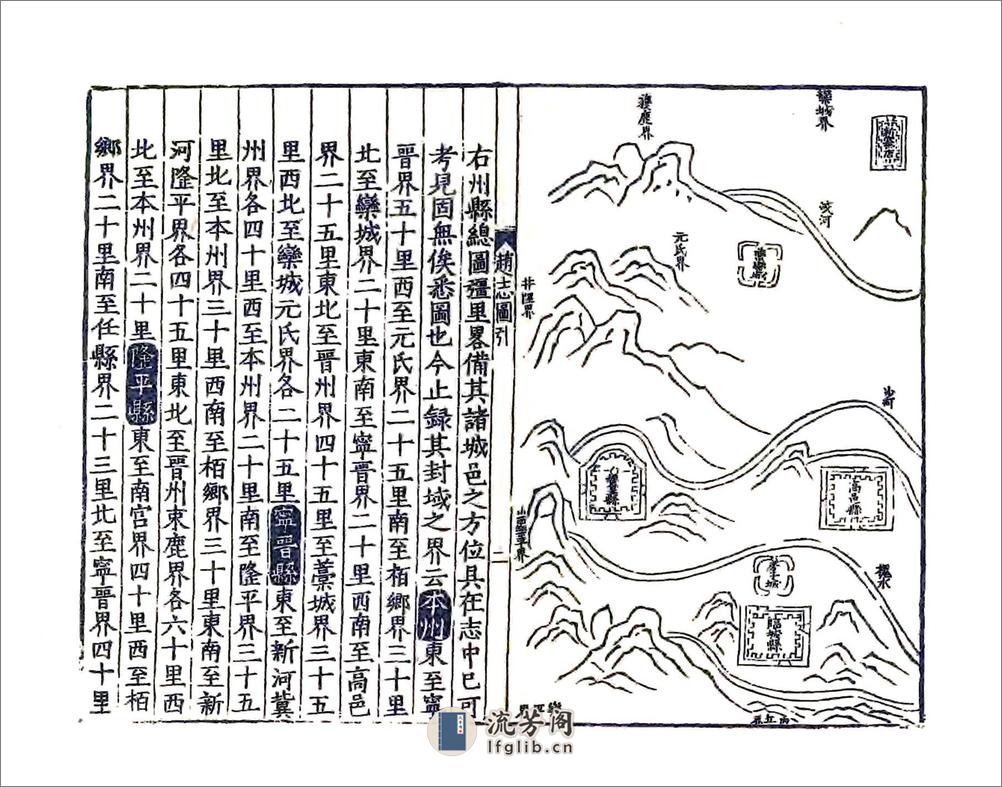 獲鹿界
欒城界
洨河
元氏界
井陘界
沙河
贊皇縣
高邑縣
臨城縣
槐水
內丘界
樂平界
趙志圖引
二
右州縣總圖疆里畧備其諸城邑之方位具在志中已可
考見固無俟悉圖也今止録其封域之界云本州東至寧
晉界五十里西至元氏界二十五里南至栢鄉界三十里
北至欒城界二十里東南至寧晉界二十里西南至高邑
界二十五里東北至晉州界四十五里至藁城界三十五
里西北至欒城元氏界各二十五里寧晉縣東至新河冀
州界各四十里西至本州界二十里南至隆平界三十五
里北至本州界三十里西南至栢鄉界三十里東南至新
河隆平界各四十五里東北至晉州束鹿界各六十里西
北至本州界二十里隆平縣東至南宫界四十里西至栢
鄉界二十里南至任縣界二十三里北至寧晉界四十里
流芳阁
lfglib.cn